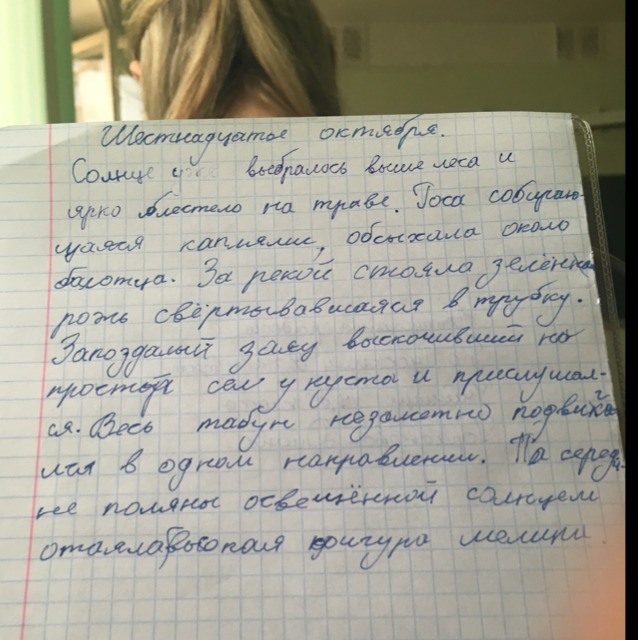 Шестнадцатое октября.
Солнце уже выбралось выше леса и
ярко блестело на траве. Роса собираю-
щаяся каплями, обсыхала около
болотца. За рекой стояла зелённая
рожь свёртывавшаяся в трубку.
Запоздалый заяц выскочивший на
простор сел у куста и прислушал-
ся. Весь табун незаметно подвига
лся в одном направлении. По середи-
не поляны освещённой солнцем
стояла высокая фигура